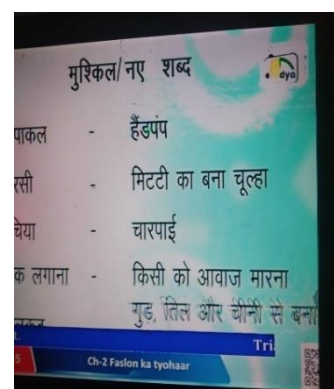 मुश्किल/नए शब्द
dya
पाकल - हैंडपंप
रसी - मिटटी का बना चूल्हा
चिया - चारपाई
क लगाना - किसी को आवाज मारना
गुड, तिल और चीनी से बना
Tri
5 Ch-2 Faslon ka tyohaar